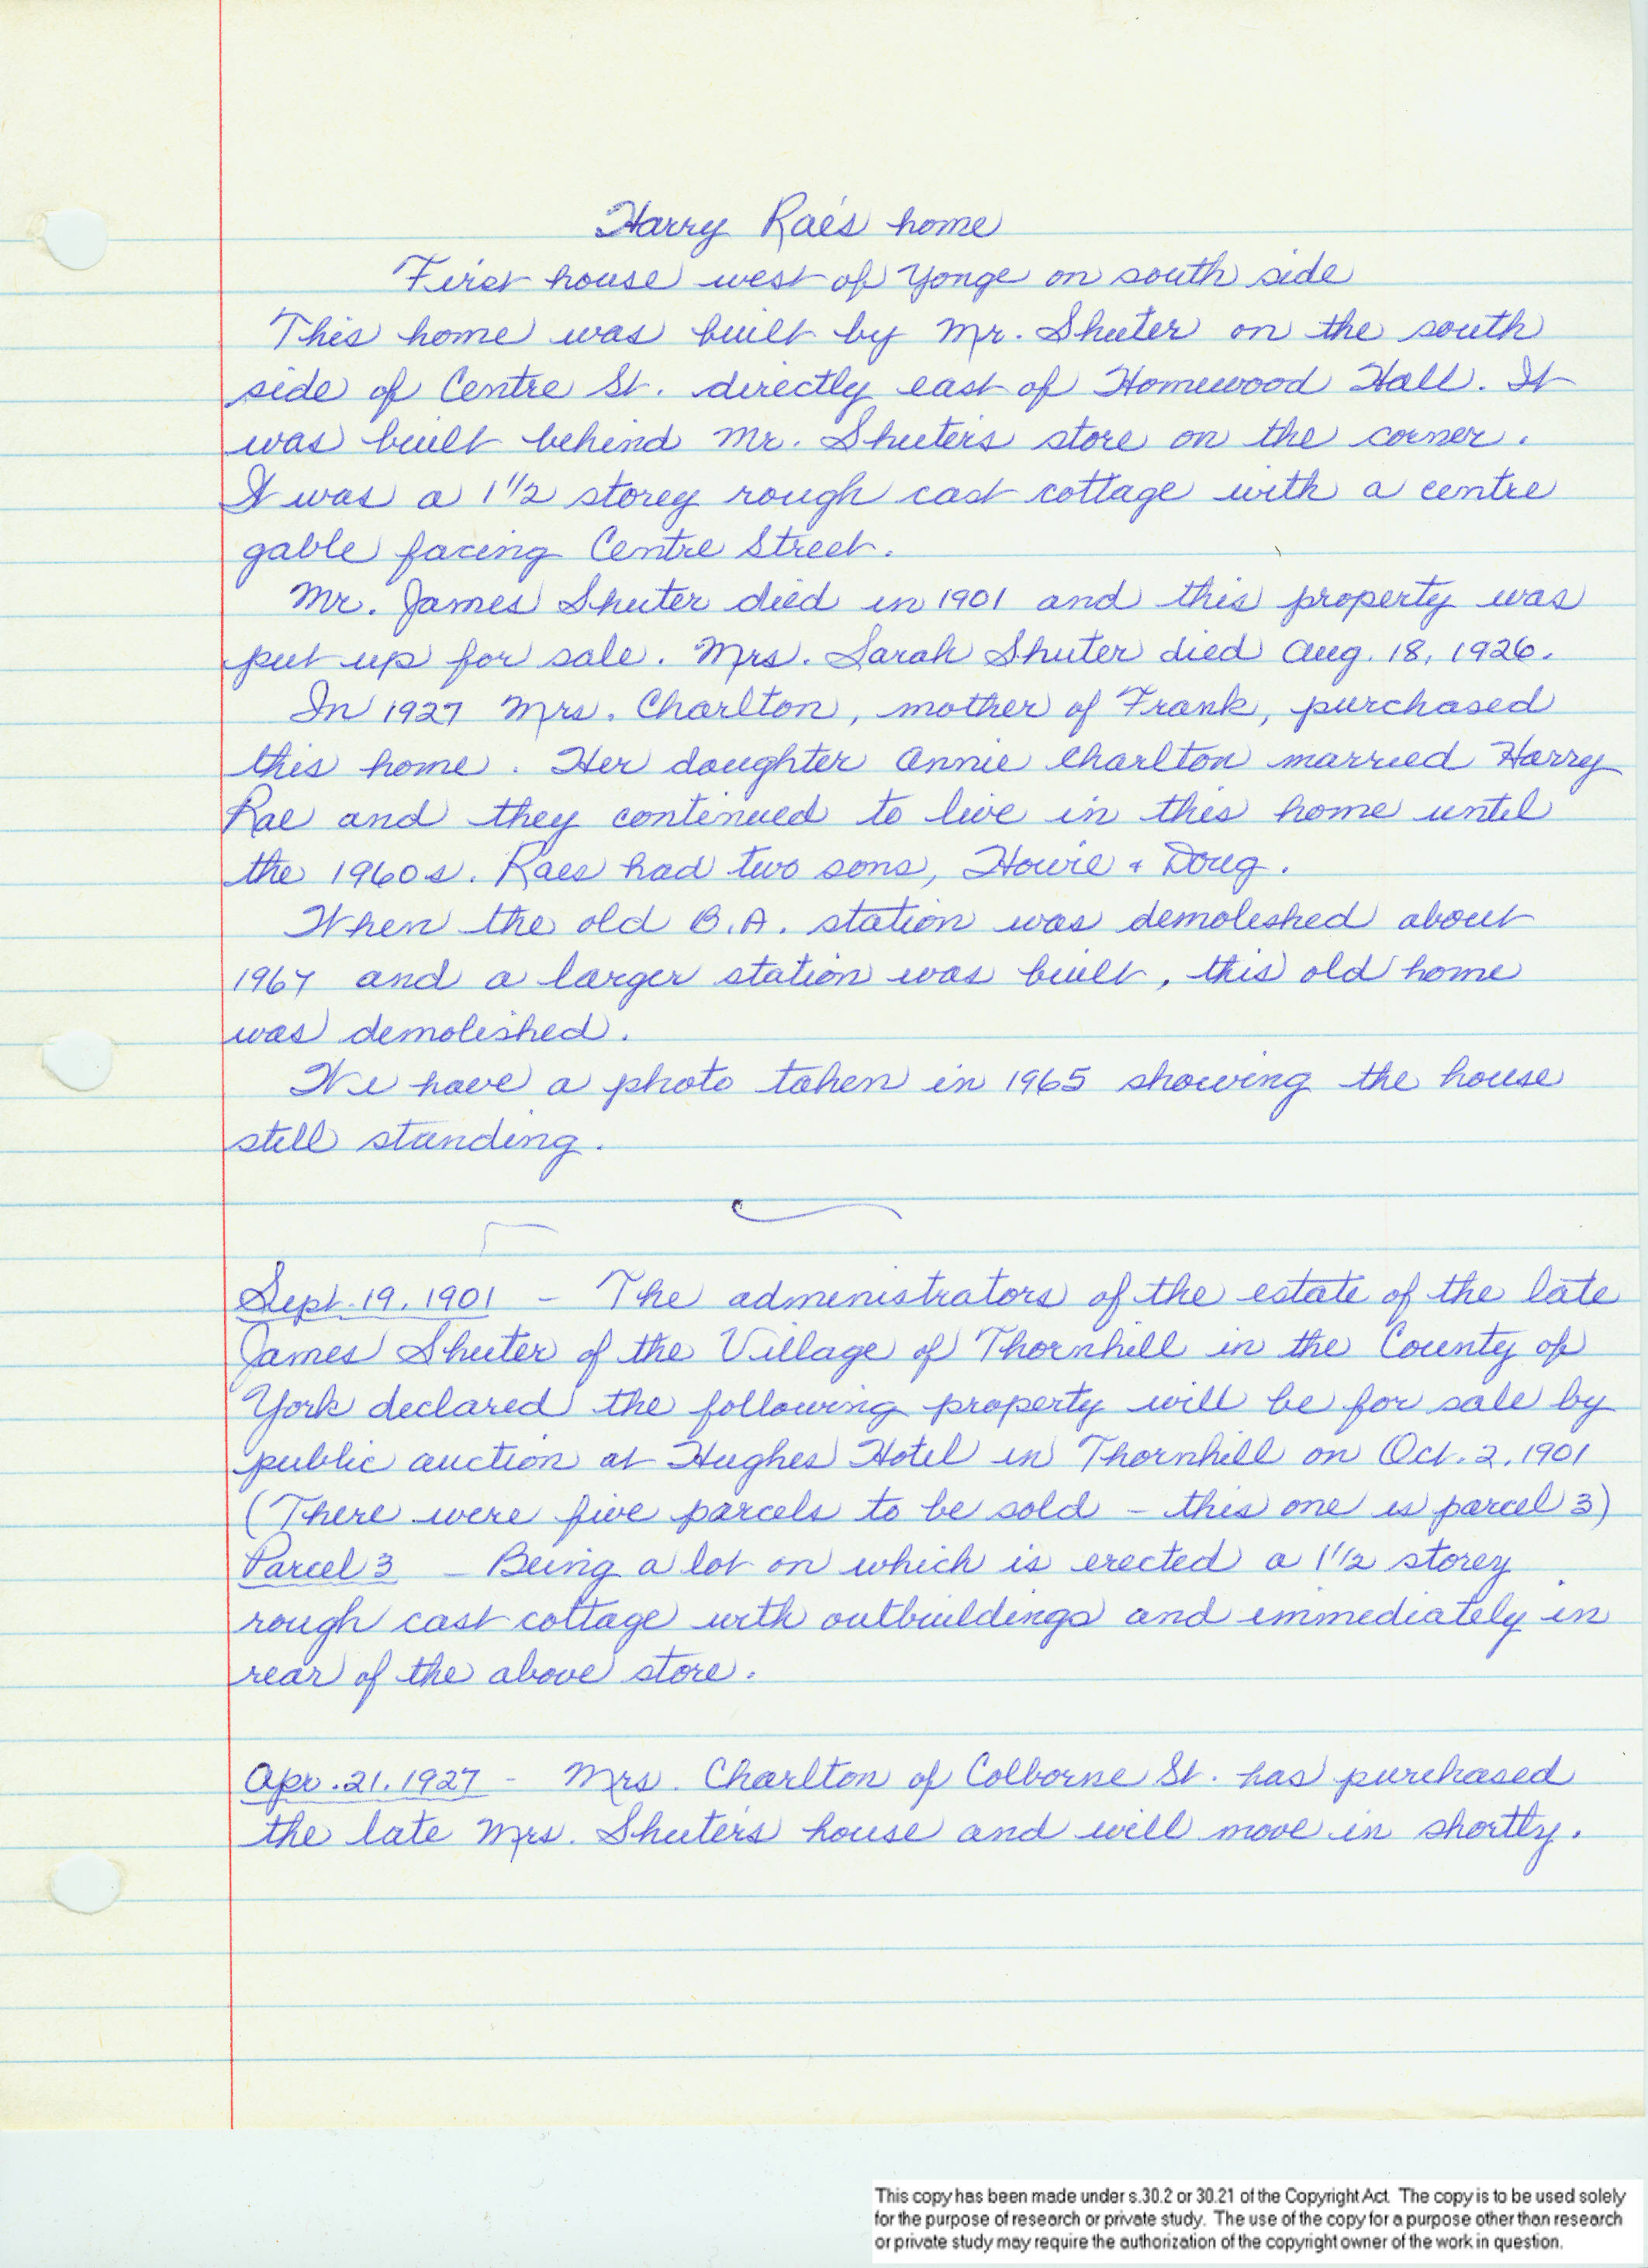 Harry Rae's home
First house west of Yonge on south side
This home was built by Mr. Shuter on the south
side of Centre St. directly east of Homewood Hall. It
was built behind Mr. Shuter's store on the corner.
It was a 1 1/2 storey rough cast cottage with a centre
gable facing Centre Street.
Mr. James Shuter died in 1901 and this property was
put up for sale. Mrs. Sarah Shuter died Aug. 18, 1926.
In 1927 Mrs. Charlton, mother of Frank, purchased
this home. Her daughter Annie Charlton married Harry
Rae and they continued to live in this home until
the 1960s. Raes had two sons, Howie + Doug.
When the old B.A. station was demolished about
1967 and a larger station was built, this old home
was demolished.
We have a photo taken in 1965 showing the house
still standing.
Sept. 19, 1901 - The administrators of the estate of the late
James Shuter of the Village of Thornhill in the County of
York declared the following property will be for sale by
public auction at Hughes Hotel in Thornhill on Oct. 2, 1901
(There were five parcels to be sold - this one is parcel 3)
Parcel 3 - Being a lot on which is erected a 1 1/2 storey
rough cast cottage with outbuildings and immediately in
rear of the above store.
Apr. 21, 1927 - Mrs. Charlton of Colborne St. has purchased
the late Mrs. Shuter's house and will move in shortly.
This copy has been made under s.30.2 or 30.21 of the Copyright Act. The copy is to be used solely
for the purpose of research or private study. The use of the copy for a purpose other than research
or private study may require the authorization of the copyright owner of the work in question.